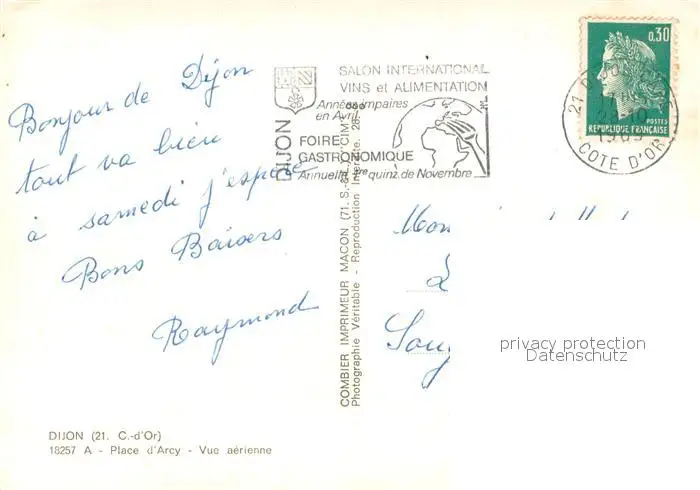 Bonjour de Dijon
tout va bien
à samedi j'espère
Bons Baisers
Raymond
DIJON (21. C.-d'Or)
18257 A - Place d'Arcy - Vue aérienne
COMBIER IMPRIMEUR MACON (71. S.-&-L.) CIM
Photographie Véritable - Reproduction Interdite.
DIJON
SALON INTERNATIONAL
VINS et ALIMENTATION
Années impaires
en Avril
FOIRE
GASTRONOMIQUE
Annuelle 1ère quinz. de Novembre
0,30
POSTES
REPUBLIQUE FRANÇAISE
21 DIJON
17H
28-10
1969
COTE D'OR
privacy protection
Datenschutz